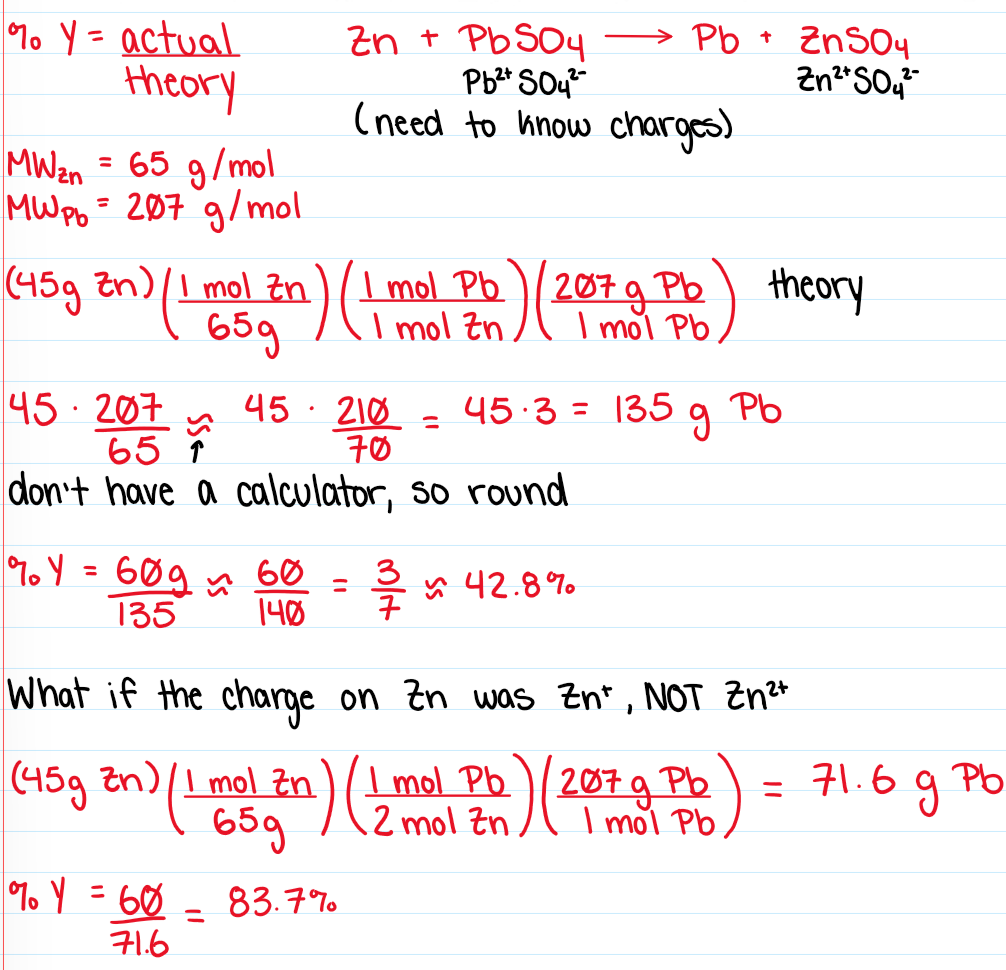 % Y = actual/theory    Zn + PbSO₄ → Pb + ZnSO₄
Pb²⁺ SO₄²⁻    Zn²⁺ SO₄²⁻
(need to know charges)
MW_Zn = 65 g/mol
MW_Pb = 207 g/mol
(45g Zn)(1 mol Zn/65g)(1 mol Pb/1 mol Zn)(207 g Pb/1 mol Pb) theory
45 · 207/65 ≈ 45 · 210/70 = 45·3 = 135 g Pb
↑
don't have a calculator, so round
% Y = 60g/135 ≈ 60/140 = 3/7 ≈ 42.8%
What if the charge on Zn was Zn⁺, NOT Zn²⁺
(45g Zn)(1 mol Zn/65g)(1 mol Pb/2 mol Zn)(207 g Pb/1 mol Pb) = 71.6 g Pb
% Y = 60/71.6 = 83.7%